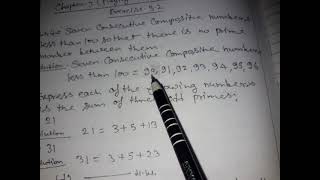 Chapter 3 (Playing
Exercise - 3.2
Seven Consecutive Composite numbers
less than 100 so that there is no prime
number between them
Solution:- Seven Consecutive Composite numbers
less than 100 = 90, 91, 92, 93, 94, 95, 96
Express each of the following numbers
as the sum of three odd primes:
21
Solution 21 = 3+5+13
31
Solution 31 = 3+5+23